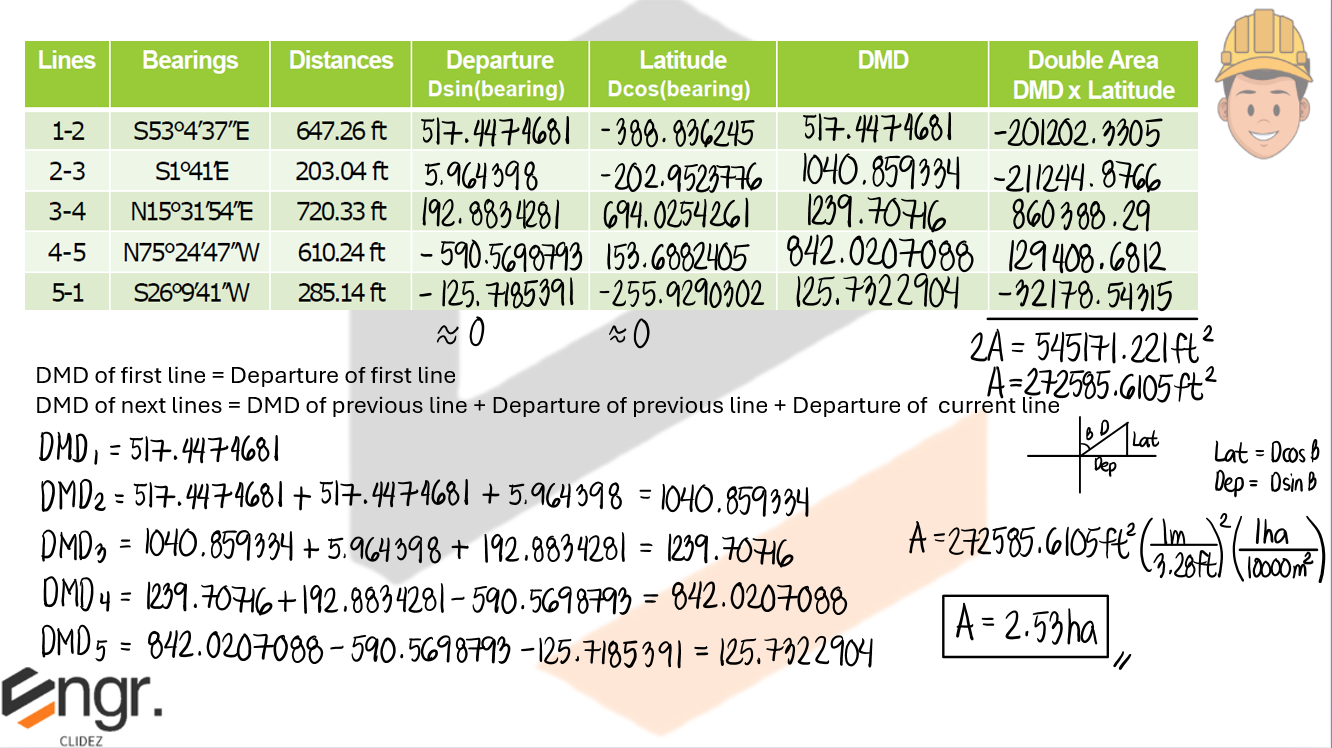 Lines Bearings Distances Departure Dsin(bearing) Latitude Dcos(bearing) DMD Double Area DMD x Latitude
1-2 S53º4'37"E 647.26 ft 517.4474681 -388.836245 517.4474681 -201202.3305
2-3 S1º41'E 203.04 ft 5.964398 -202.9523776 1040.859334 -211244.8766
3-4 N15º31'54"E 720.33 ft 192.8834281 694.0254261 1239.70716 860388.29
4-5 N75º24'47"W 610.24 ft -590.5698793 153.6882405 842.0207088 129408.6812
5-1 S26º9'41"W 285.14 ft -125.7185391 -255.9290302 125.7322904 -32178.54315
≈ 0 ≈ 0
2A = 545171.221ft²
A=272585.6105ft²
DMD of first line = Departure of first line
DMD of next lines = DMD of previous line + Departure of previous line + Departure of current line
DMD₁ = 517.4474681
DMD₂ = 517.4474681 + 517.4474681 + 5.964398 = 1040.859334
DMD₃ = 1040.859334 + 5.964398 + 192.8834281 = 1239.70716
DMD₄ = 1239.70716+192.8834281-590.5698793 = 842.0207088
DMD₅ = 842.0207088-590.5698793-125.7185391 = 125.7322904
B D Lat
Dep
Lat = Dcos B
Dep = Dsin B
A=272585.6105ft² (1m/3.28ft)² (1ha/10000m²)
A = 2.53ha
Engr.
CLIDEZ